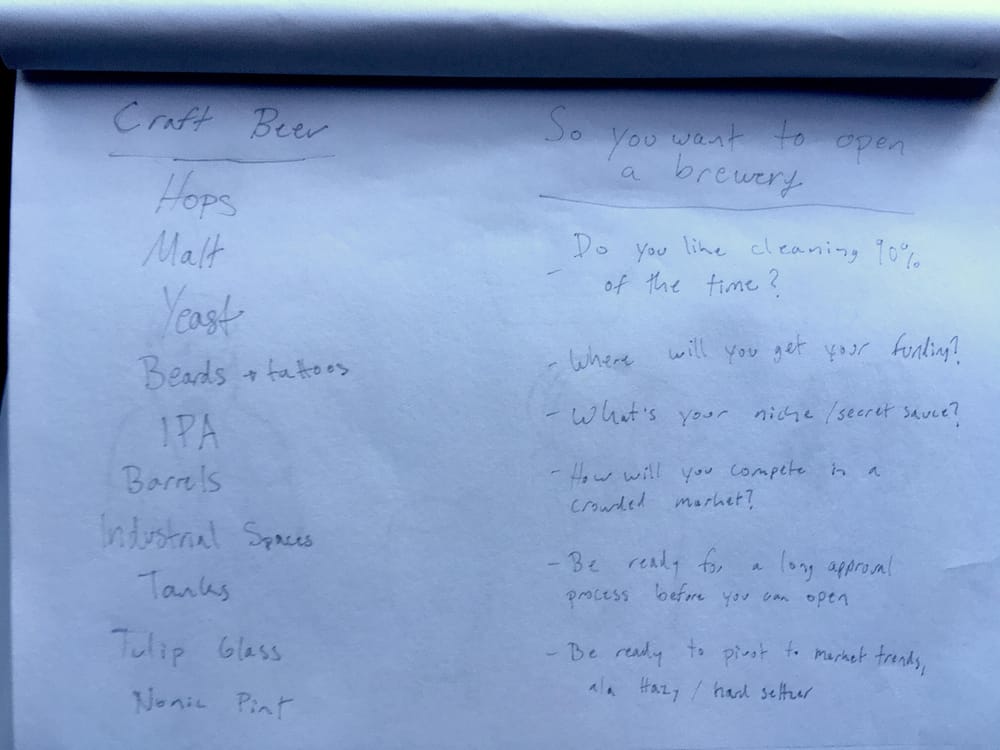 Craft Beer
Hops
Malt
Yeast
Beards + tattoos
IPA
Barrels
Industrial Spaces
Tanks
Tulip Glass
Nonic Pint
So you want to open
a brewery
- Do you like cleaning 90%
of the time?
- Where will you get your funding?
- What's your niche/secret sauce?
- How will you compete in a
crowded market?
- Be ready for a long approval
process before you can open
- Be ready to pivot to market trends,
ala Hazy / hard seltzer